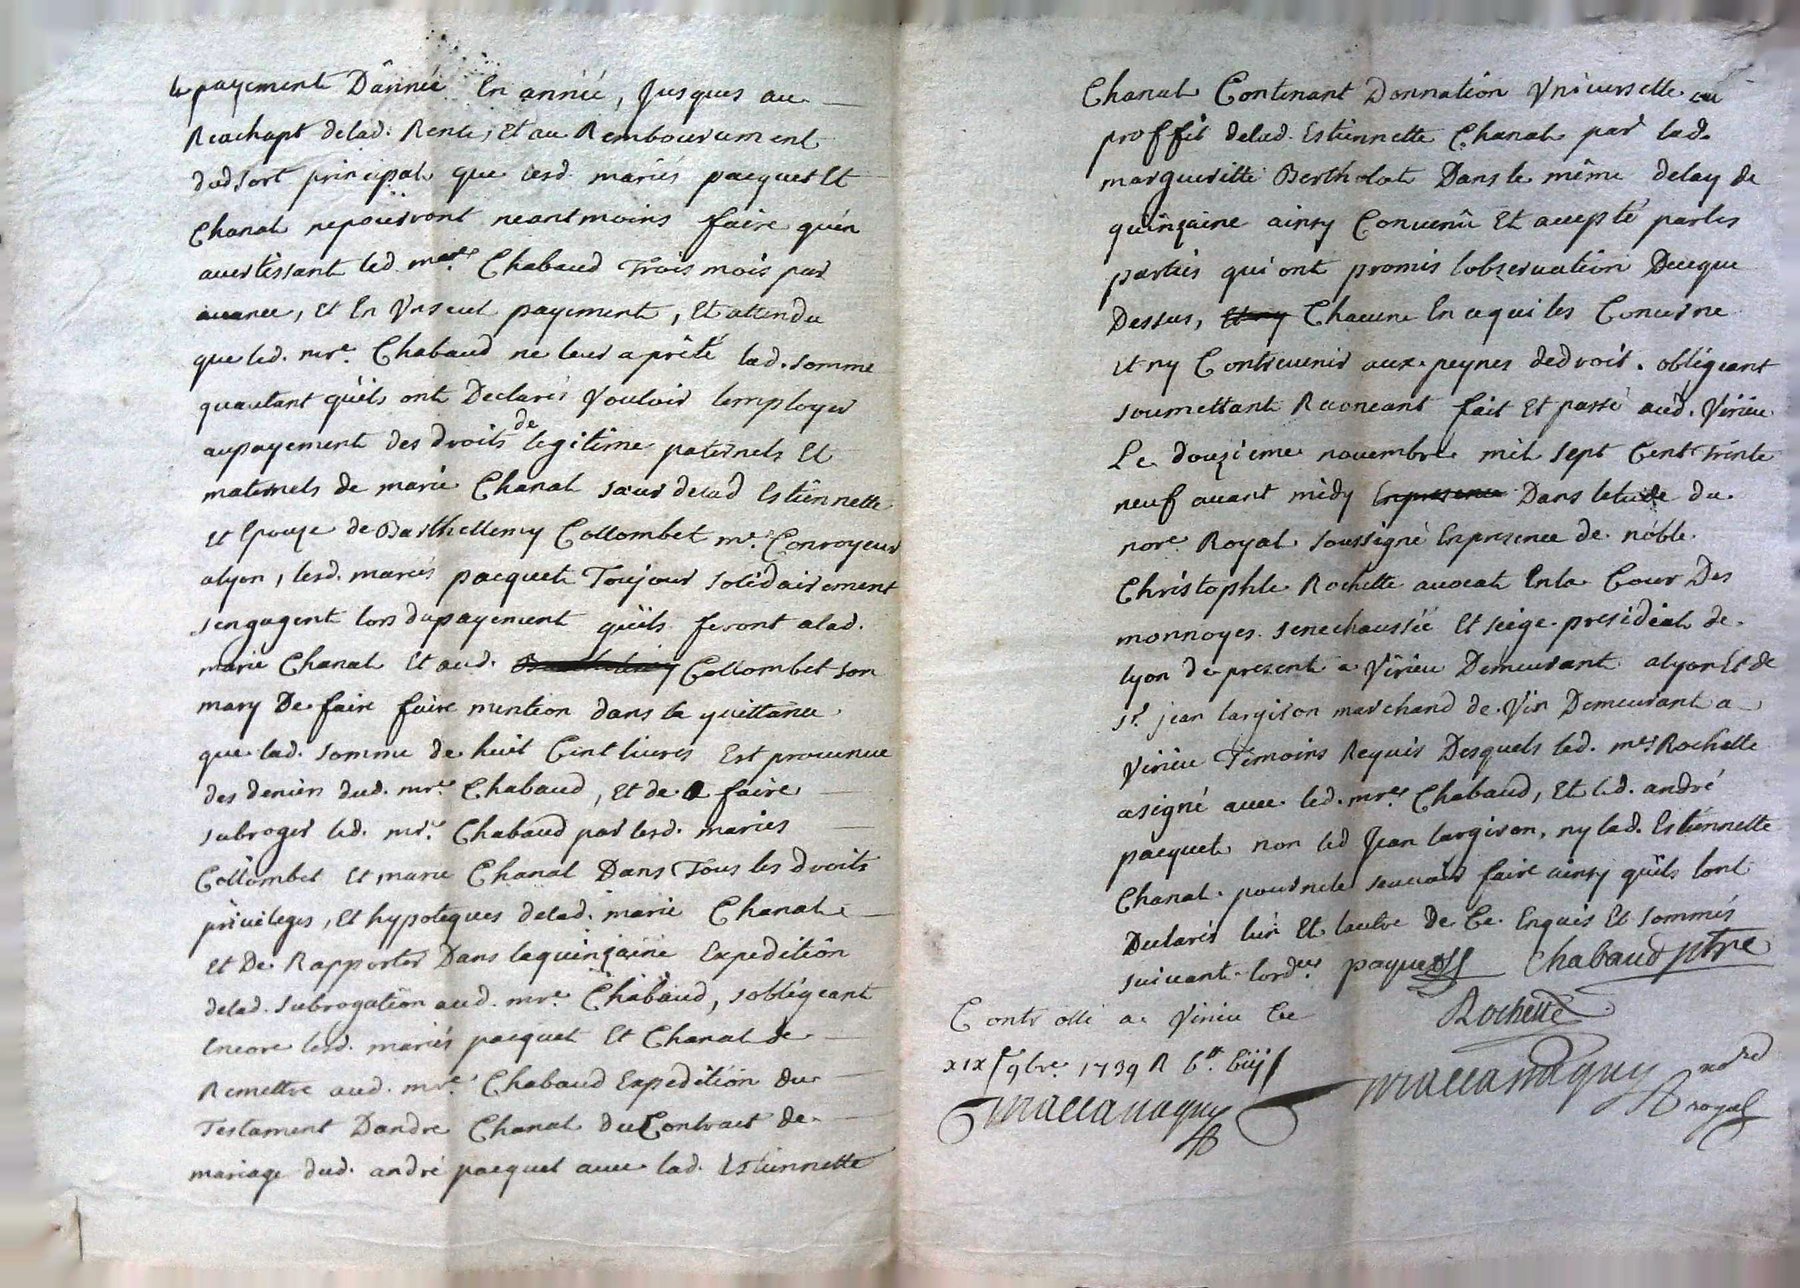 le payement D'année En année, Jusques au
Reachapt delad. Rente, Et au Rembourcement
dud sort principal que lesd. mariés pacquet Et
Chanal nepouront neantmoins faire qu'en
avertissant led. mre. Chabaud Trois mois par
avance, et En Un seul payement, Et attendu
que led. mre. Chabaud ne leur a prêté lad. somme
quautant qu'ils ont Declarés Vouloir lemployer
aupayement des droits de legitime paternels Et
maternels de marie Chanal sœur delad Estiennette
et Epouze de Barthellemy Collombet me. Conroyeur
alyon, lesd. mariés pacquet Toujour solidairement
sengagent lors dupayement qu'ils feront alad.
marie Chanal et aud. Collombet son
mary De faire faire mention dans la quittance
que lad. somme de huit Cent livres Est provenue
des deniers dud. mre. Chabaud, et de faire
subroger led. mre. Chabaud par lesd. mariés
Collombet et marie Chanal Dans Tous les droits
privileges, Et hypoteques delad. marie Chanal
et De Rapporter Dans laquinzaine Expedition
delad. subrogation aud. mre. Chabaud, sobligeant
Encore lesd. mariés pacquet Et Chanal de
Remettre aud. mre. Chabaud Expedition du
Testament Dandré Chanal du Contract de
mariage dud. andré pacquet avec lad. Estiennette
Chanal Contenant Donnation Vniverselle au
proffit delad. Estiennette Chanal par lad.
margueritte Bertholat Dans le même delay de
quinzaine ainsy Convenû Et accepté parles
parties qui ont promis lobservation Deceque
Dessus, Et ny Chacune En cequi les Concerne
et ny Contrevenir aux peynes dedroit. obligeant
soumettant Renonçant fait Et passé aud. Virieu
Le douzieme novembre mil sept Cent Trente
neuf avant midy Enpresence Dans letude du
nore. Royal soussigné Enpresence de noble
Christophle Rochette avocat Enla Cour Des
monnoyes senechaussée Et siege presidial de
lyon de present a Virieu Demeurant alyon Et de
sr. jean largiron marchand de Vin Demeurant a
Virieu Temoins Requis Desquels led. me. Rochette
asigné avec led. mre. Chabaud, Et led. andré
pacquet non led Jean largiron, ny lad. Estiennette
Chanal pour ne le scavoir faire ainsy qu'ils lont
Declarés lun Et lautre De Ce Enquis Et sommés
suivant lordce. paquet Chabaud ptre
Rochette
Controllé a Virieu Le
xix 9bre. 1739 R